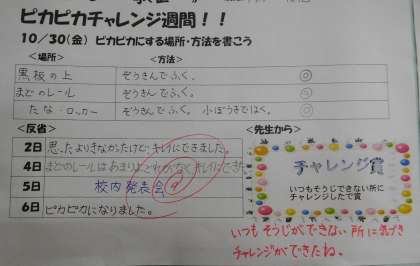 ピカピカチャレンジ週間！！
10／30(金) ピカピカにする場所・方法を書こう
＜場所＞ ＜方法＞
黒板の上 ぞうきんでふく。 ◎
まどのレール ぞうきんでふく。 ◎
たな・ロッカー ぞうきんでふく。小ぼうきではく。 ○
＜反省＞ ＜先生から＞
2日 思ったよりきたなかったけどキレイにできました。
4日 まどのレールはあまりよごれがなくキレイにでき
5日 校内発表会
6日 ピカピカになりました。
チャレンジ賞
いつもそうじできない所に
チャレンジしたで賞
いつもそうじができない所に気づき
チャレンジができたね。